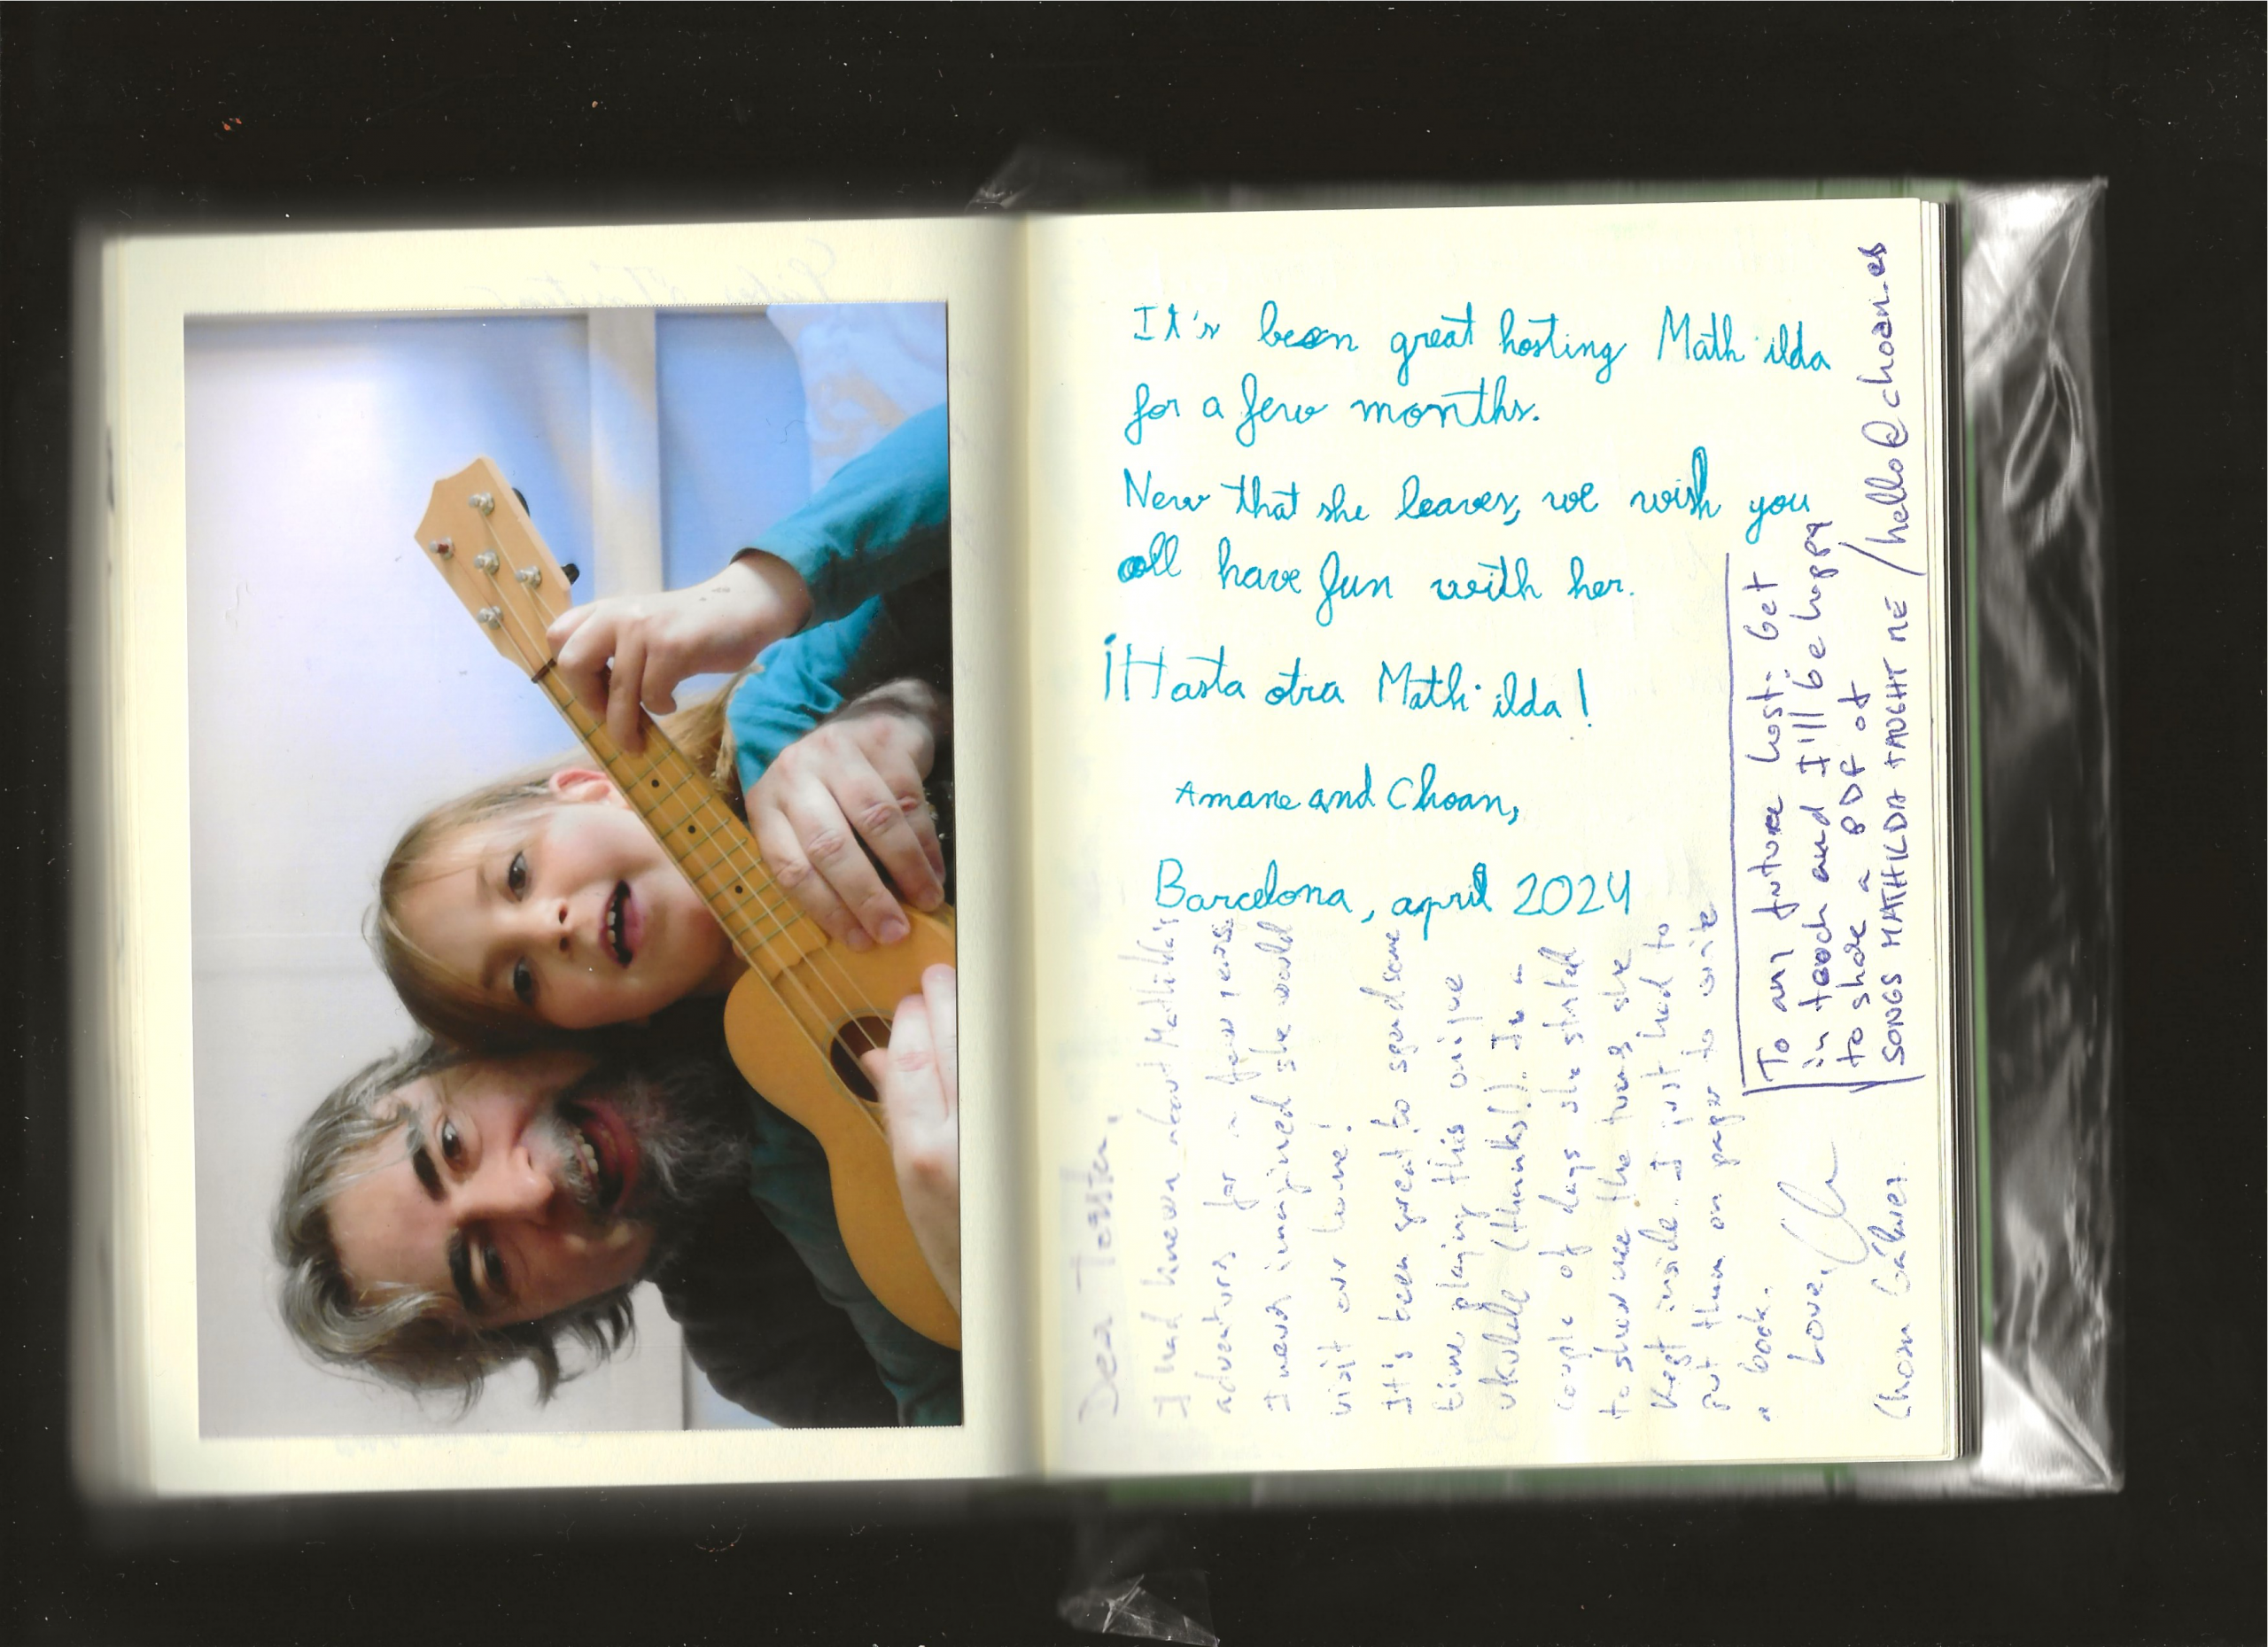 It's been great hosting Math·ilda
for a few months.
Now that she leaves, we wish you
all have fun with her.
¡Hasta otra Math·ilda!
Amane and Choan,
Barcelona, april 2024
I had known about Mathilda's
adventures for a few years.
I never imagined she would
visit our home!
It's been great to spend some
time playing this unique
ukulele (thanks!). In a
couple of days she started
to show me the tunes she
kept inside. I just had to
put them on paper to write
a book.
Love,
Choan Gálvez
To any future host: Get
in touch and I'll be happy
to share a PDF of
SONGS MATHILDA TAUGHT ME / hello@choan.es